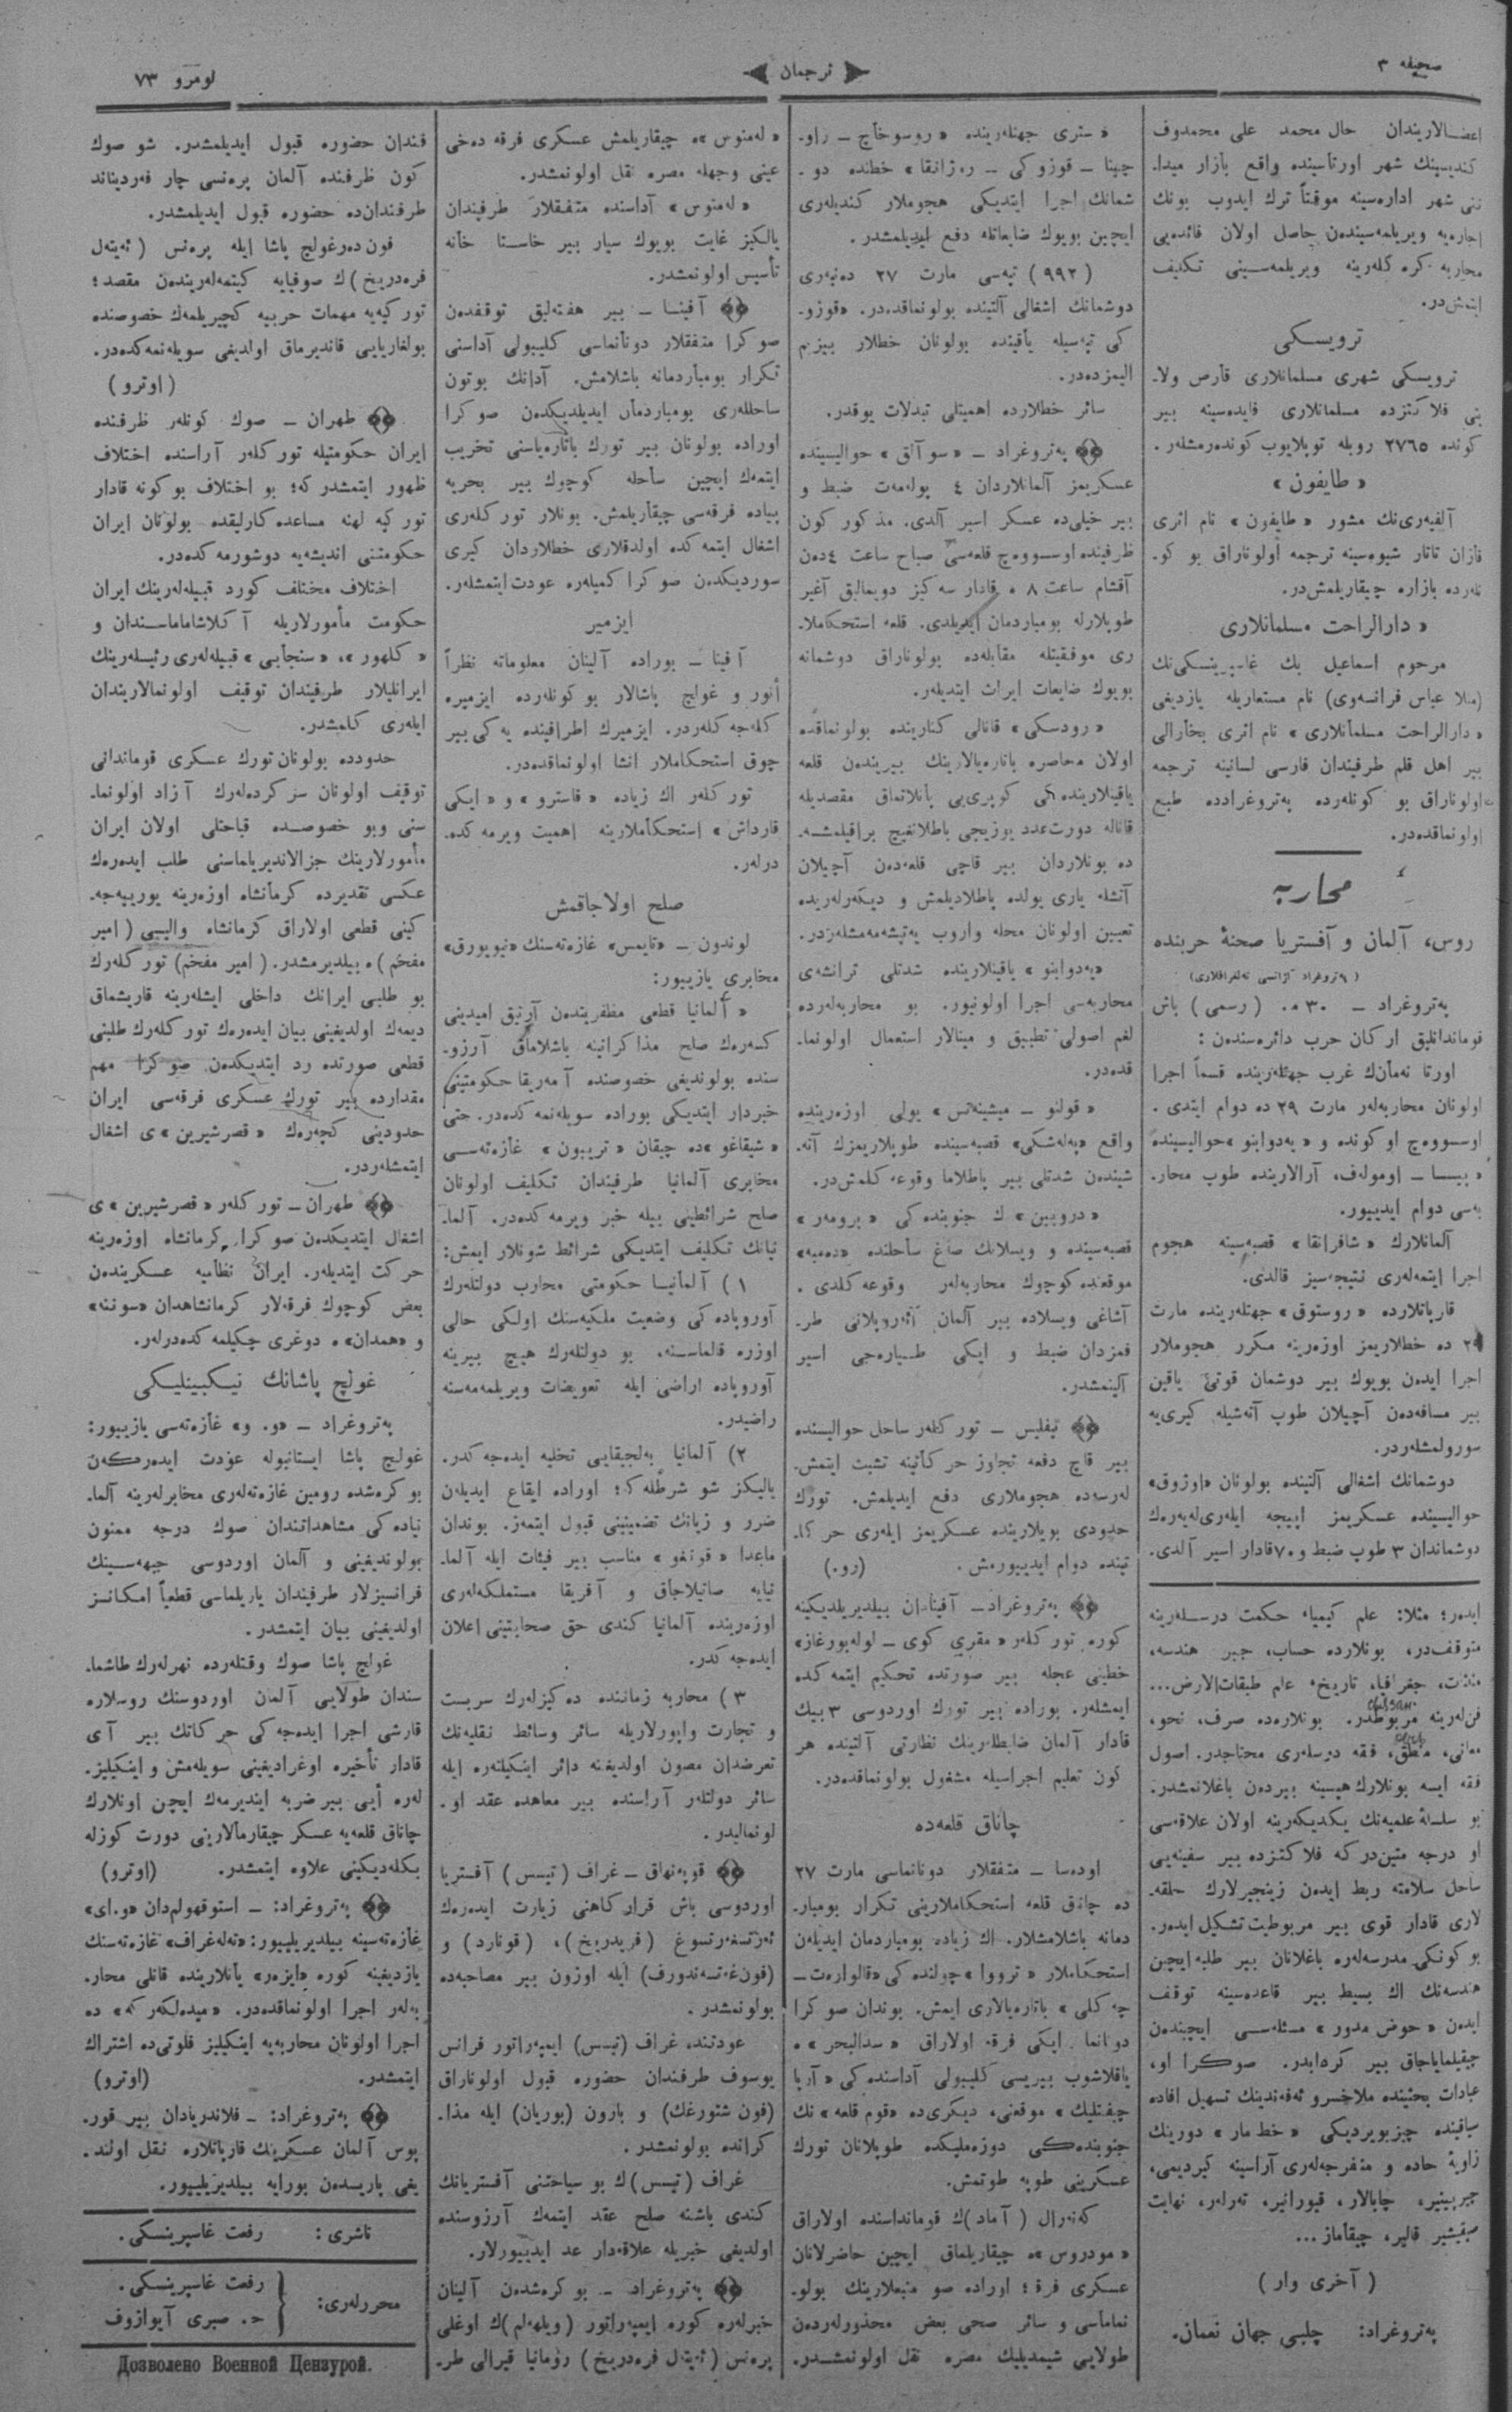 صحیفه ٣
ترجمان
نومرو ٧٣
اعضالاریندان حال محمد علی محمدوف
كندیسینك شهر اورتاسینده واقع بازار میدا-
نی شهر اداره‌سینه موقتاً ترك ایدوب بونك
اجاره‌یه ویریلمه‌سیندن حاصل اولان فائده‌یی
محاربه كره‌كلرینه ویریلمه‌سینی تكلیف
ایتمش‌در.
ترویسكی
ترویسكی شهری مسلمانلاری قارص ولا-
یتی فلاكتزده مسلمانلاری فایده‌سینه بیر
كونده ٢٧٦٥ روبله توپلایوب كوندەرمشلەر.
« طایفون »
قازان تاتار شیوه‌سینه ترجمه اولوناراق بو كو-
نلەرده بازاره چیقاریلمش‌در.
« دارالراحت مسلمانلاری
مرحوم اسماعیل بك غاسپرینسكی‌نك
(ملا عباس فرانسه‌وی) نام مستعاریله یازدیغی
« دارالراحت مسلمانلاری » نام اثری بخارالی
بیر اهل قلم طرفیندان فارسی لسانینه ترجمه
اولوناراق بو كونلەرده پەتروغرادده طبع
اولونماقده‌در.
محاربه
روس، آلمان و آفستریا صحنهٔ حربنده
( پەتروغراد آژانسی تەلغرافلاری)
پەتروغراد – ٣٠ م. (رسمی) باش
قوماندانلیق اركان حرب دائره‌سندن :
اورتا نەمان‌ك غرب جهتلەرینده قسماً اجرا
اولونان محاربه‌لەر مارت ٢٩ ده دوام ایتدی.
اوسسووەچ اوكونده و «یەدوابنو» حوالیسینده
« پیسا – اومولەف، آرالارینده طوپ محار-
به‌سی دوام ایدییور.
آلمانلارك « شافرانقا » قصبه‌سینه هجوم
اجرا ایتمه‌لەری نتیجه‌سیز قالدی.
قارپاتلارده « روستوق » جهتلەرینده مارت
ده خطلاریمز اوزەرینه مكرر هجوملار
اجرا ایدن بویوك بیر دوشمان قوتی یاقین
بیر مسافەدن آچیلان طوپ آتەشیله كیری‌یه
سورولمشلەردر.
دوشمانك اشغالی آلتینده بولونان «اوزوق»
حوالیسینده عسكریمز اییجه ایلەری‌لەیەرەك
دوشماندان ٣ طوپ ضبط و ٧٠٠ قادار اسیر آلدی.
ایدەر؛ مثلا: علم كیمیاء حكمت درسلەرینه
متوقف‌در، بونلارده حساب، جبر هندسه،
مثلثات، جغرافیا، تاریخ، علم طبقات‌الارض...
فن‌لەرینه مربوطدر. بونلارەده صرف، نحو،
معانی، منطق، فقه درسلەری محتاجدر. اصول
فقه ایسه بونلارك هپسینه بیردن باغلانمشدر.
بو سلسلهٔ علمیه‌نك یكدیكەرینه اولان علاقه‌سی
او درجه متین‌دركه فلاكتزده بیر سفینه‌یی
ساحل سلامته ربط ایدن زینجیرلارك حلقه-
لاری قادار قوی بیر مربوطیت تشكیل ایدەر.
بو كونكی مدرسه‌لەره باغلانان بیر طلبه ایچین
هندسه‌نك اك بسیط بیر قاعده‌سینه توقف
ایدن « حوض مدور » مسئله‌سی ایچیندن
چیقیلمایاجاق بیر كره‌ایدر. صوكرا او،
عبادات بحثینده ملاخسرو ئەفەندینك تسهیل افاده
سیاقنده چیزیویردیكی « خط مار » دورینك
زاویهٔ حاده و منفرجه‌لەری آراسینه كیردیمی،
چیرپینیر، چابالار، قیورانیر، تەرلەر، نهایت
صیقیشیر قالیر، چیقاماز...
( آخری وار )
پەتروغراد: چلبی جهان نعمان.
« ستری جهتلەرینده « روسوخاچ – راو-
چینا – قوزوكی – رەژانقا » خطنده دو-
شمانك اجرا ایتدیكی هجوملار كندیلەری
ایچین بویوك ضایعاتله دفع ایدیلمشدر.
( ٩٩٢ ) تپه‌سی مارت ٢٧ دەنبەری
دوشمانك اشغالی آلتینده بولونماقده‌در. «قوزو-
كی تپه‌سیله یاقینده بولونان خطلار بیزیم
الیمزده‌در.
سائر خطلارده اهمیتلی تبدلات یوقدر.
پەتروغراد – « سوآلق » حوالیسینده
عسكریمز آلمانلاردان ٤ پولەمەت ضبط و
بیر خیلی‌ده عسكر اسیر آلدی. مذكور كون
ظرفینده اوسسووەچ قلعه‌سی صباح ساعت ٤ دن
آقشام ساعت ٨ ه قادار سەكیز دویمالیق آغیر
طوپلارله بومباردمان ایدیلدی. قلعه استحكاملا-
ری موفقیتله مقابله‌ده بولوناراق دوشمانه
بویوك ضایعات ایراث ایتدیلەر.
« رودسكی » قانالی كنارینده بولونماقده
اولان محاصره باتاریالارینك بیریندن قلعه
یاقینلارینده‌كی كوپری‌یی پاتلاتماق مقصدیله
قاناله دورت‌عدد یوزیجی پاطلانغیچ براقیلمشه-
ده بونلاردان بیر قاچی قلعه‌دن آچیلان
آتشله یاری یولده پاطلادیلمش و دیكەرلەریده
تعیین اولونان محله واروب یەتیشەمەمشلەردر.
«یەدوابنو» یاقینلارینده شدتلی ترانشه‌ی
محاربه‌سی اجرا اولونیور. بو محاربه‌لەرده
لغم اصولی تطبیق و مینالار استعمال اولونما-
قده‌در.
« قولنو – میشینەتس » یولی اوزەرینده
واقع «پەلەشكی» قصبه‌سینده طوپلاریمزك آتە-
شیندن شدتلی بیر پاطلاما وقوعه كلمش‌در.
« دروبین » ك جنوبنده‌كی « برومەر »
قصبه‌سینده و ویسلانك صاغ ساحلنده «دەمبه»
موقعنده كوچوك محاربه‌لەر وقوعه كلدی.
آشاغی ویسلاده بیر آلمان آئەروپلانی طر-
فمزدان ضبط و ایكی طیاره‌جی اسیر
آلینمشدر.
تیفلیس – توركلەر ساحل حوالیسنده
بیر قاچ دفعه تجاوز حركاتینه تشبث ایتمش-
لەرسه‌ده هجوملاری دفع ایدیلمش. تورك
حدودی بویلارینده عسكریمز ایلەری حركا-
تینده دوام ایدییورمش. (رو.)
پەتروغراد – آفینادان بیلدیریلدیكینه
كوره توركلەر « مقری كوی – لوله‌بورغاز»
خطینی عجله بیر صورتده تحكیم ایتمه‌كده
ایمشلەر. بوراده بیر تورك اوردوسی ٣ بیك
قادار آلمان ضابطلەرینك نظارتی آلتینده هر
كون تعلیم اجراسیله مشغول بولونماقده‌در.
چاناق قلعه‌ده
اوده‌سا – متفقلار دونانماسی مارت ٢٧
ده چاناق قلعه استحكاملارینی تكرار بومبار-
دمانه باشلامشلار. اك زیاده بومباردمان ایدیلن
استحكاملار « تروو! » چولنده‌كی «قالوارەت –
چه‌كلی » باتاره‌یالاری ایمش. بوندان صوكرا
دونانما ایكی فرقه اولاراق « سدالبحر » ه
یاقلاشوب بیریسی كلیبولی آداسنده‌كی « آریا
چفتلیك » موقعنی، دیكری‌ده «قوم قلعه» نك
جنوبنده‌كی دوزه‌ملیكده طوپلانان تورك
عسكرینی طوپه طوتمش.
كەنەرال ( آماد )ك قومانداسنده اولاراق
« مودروس »ه چیقاریلماق ایچین حاضرلانان
عسكری فرقه؛ اوراده صو منبعلارینك بولو-
نماماسی و سائر صحی بعض محذورلەردن
طولایی شیمدیلیك مصره نقل اولونمشدر.
« لەمنوس »ه چیقاریلمش عسكری فرقه ده‌خی
عینی وجهله مصره نقل اولونمشدر.
« لەمنوس » آداسنده متفقلار طرفیندان
یالكیز غایت بویوك سیار بیر خاستا خانه
تأسیس اولونمشدر.
آفینا – بیر هفته‌لیق توقفدن
صوكرا متفقلار دونانماسی كلیبولی آداسنی
تكرار بومباردمانه باشلامش. آدانك بوتون
ساحللەری بومباردمان ایدیلدیكدن صوكرا
اوراده بولونان بیر تورك باتاره‌یاسنی تخریب
ایتمەك ایچین ساحله كوچوك بیر بحریه
پیاده فرقه‌سی چیقاریلمش. بونلار توركلەری
اشغال ایتمه‌كده اولدقلاری خطلاردان كیری
سوردیكدن صوكرا كمیلەره عودت ایتمشلەر.
ایزمیر
آفینا – بوراده آلینان معلوماته نظراً
أنور و غولچ پاشالار بو كونلەرده ایزمیره
كلەجەكلەردر. ایزمیرك اطرافینده یەكی بیر
چوق استحكاملار انشا اولونماقده‌در.
توركلەر اك زیاده « قاسترو » و « ایكی
قارداش » استحكاملارینه اهمیت ویرمه‌كده-
درلەر.
صلح اولاجاقمش
لوندون – «تایمس» غازه‌ته‌سنك «نیویورق»
مخابری یازییور:
« آلمانیا قطعی مظفریتدن آرتیق امیدینی
كسەرەك صلح مذاكراتینه باشلاماق آرزو-
سنده بولوندیغی خصوصنده آمەریقا حكومتینی
خبردار ایتدیكی بوراده سویلەنمه‌كده‌در. حتی
« شیقاغو »ده چیقان « تریبون » غازه‌ته‌سی
مخابری آلمانیا طرفیندان تكلیف اولونان
صلح شرائطینی بیله خبر ویرمه‌كده‌در. آلما-
نیانك تكلیف ایتدیكی شرائط شونلار ایمش:
١) آلمانیا حكومتی محارب دولتلەرك
آوروپاده‌كی وضعیت ملكیه‌سنك اولكی حالی
اوزره قالماسنه، بو دولتلەرك هیچ بیرینه
آوروپاده اراضی ایله تعویضات ویریلمه‌مه‌سنه
راضیدر.
٢) آلمانیا بەلجیقایی تخلیه ایدەجەكدر.
یالیكز شو شرطله‌كه؛ اوراده ایقاع ایدیلن
ضرر و زیانك تضمینینی قبول ایتمەز. بوندان
ماعدا « قونغو » مناسب بیر فیئات ایله آلما-
نیایه صاتیلاجاق و آفریقا مستملكه‌لەری
اوزەرینده آلمانیا كندی حق صحابتینی اعلان
ایدەجەكدر.
٣) محاربه زماننده دەكیزلەرك سربست
و تجارت واپورلاریله سائر وسائط نقلیه‌نك
تعرضدان مصون اولدیغنه دائر اینكیلتەره ایله
سائر دولتلەر آراسنده بیر معاهده عقد او-
لونمالیدر.
قوپەنهاق – غراف (تیسس) آفستریا
اوردوسی باش قرارگاهنی زیارت ایدەرەك
ئەرتسغەرتسوغ (فریدریخ)، (قونراد) و
(فون‌غەتسەندورف) ایله اوزون بیر مصاحبه‌ده
بولونمشدر.
عودتنده غراف (تیسس) ایمپەراتور فرانس
یوسوف طرفندان حضوره قبول اولوناراق
(فون شتورغك) و بارون (بوریان) ایله مذا-
كراتده بولونمشدر.
غراف (تیسس)ك بو سیاحتنی آفستریانك
كندی باشنه صلح عقد ایتمەك آرزوسنده
اولدیغی خبریله علاقه‌دار عد ایدییورلار.
پەتروغراد – بو كره‌شەدن آلینان
خبرلەره كوره ایمپەراتور (ویلهەلم)ك اوغلی
پرەنس (ئەیتەل فرەدریخ) رومانیا قیرالی طر-
فندان حضوره قبول ایدیلمشدر. شو صوك
كون ظرفنده آلمان پرەنسی چار فەردیناند
طرفندان‌ده حضوره قبول ایدیلمشدر.
فون دەرغولچ پاشا ایله پرەنس (ئەیتەل
فرەدریخ)ك صوفیایه كیتمەلەریندن مقصد؛
توركیه‌یه مهمات حربیه كچیریلمەك خصوصنده
بولغاریایی قاندیرماق اولدیغی سویلەنمه‌كده‌در.
(اوترو)
طهران – صوك كونلەر ظرفنده
ایران حكومتیله توركلەر آراسنده اختلاف
ظهور ایتمشدر كه؛ بو اختلاف بو كونه قادار
توركیه لهنه مساعده‌كارلیقده بولونان ایران
حكومتنی اندیشه‌یه دوشورمه‌كده‌در.
اختلاف مختلف كورد قبیله‌لەرینك ایران
حكومت مأمورلاریله آكلاشاماماسندان و
« كلهور »، « سنجابی » قبیله‌لەری رئیسلەرینك
ایرانلیلار طرفیندان توقیف اولونمالاریندان
ایلەری كلمشدر.
حدودده بولونان تورك عسكری قوماندانی
توقیف اولونان سركرده‌لەرك آزاد اولونما-
سنی وبو خصوصده قباحتلی اولان ایران
مأمورلارینك جزالاندیریلماسنی طلب ایدەرەك
عكسی تقدیرده كرمانشاه اوزەرینه یورییەجە-
كینی قطعی اولاراق كرمانشاه والیسی (امیر
مفخم)ه بیلدیرمشدر. (امیر مفخم) توركلەرك
بو طلبی ایرانك داخلی ایشلەرینه قاریشماق
دیمەك اولدیغینی بیان ایدەرەك توركلەرك طلبنی
قطعی صورتده رد ایتدیكدن صوكرا مهم
مقدارده بیر تورك عسكری فرقه‌سی ایران
حدودینی كچەرەك « قصرشیرین »ی اشغال
ایتمشلەردر.
طهران – توركلەر « قصرشیرین »ی
اشغال ایتدیكدن صوكرا كرمانشاه اوزەرینه
حركت ایتدیلەر. ایران نظامیه عسكریندن
بعض كوچوك فرقه‌لار كرمانشاهدان «سوننه»
و «همدان»ه دوغری چكیلمه‌كده‌درلەر.
غولچ پاشانك نیكبینلیكی
پەتروغراد – «و. و» غازه‌ته‌سی یازییور:
غولچ پاشا ایستانبوله عودت ایدەركەن
بوكره‌شده رومین غازه‌ته‌لەری مخابرلەرینه آلما-
نیاده‌كی مشاهداتندان صوك درجه ممنون
بولوندیغینی و آلمان اوردوسی جبهه‌سینك
فرانسیزلار طرفیندان یاریلماسی قطعیاً امكانسز
اولدیغینی بیان ایتمشدر.
غولچ پاشا صوك وقتلەرده نهرلەرك طاشما-
سندان طولایی آلمان اوردوسنك روسلاره
قارشی اجرا ایدەجەكی حركاتك بیر آی
قادار تأخیره اوغرادیغینی سویلەمش و اینكیلیز-
لەره أیی بیر ضربه ایندیرمەك ایچن اونلارك
چاناق قلعه‌یه عسكر چیقارمالارینی دورت كوزله
بكله‌دیكینی علاوه ایتمشدر. (اوترو)
پەتروغراد: – استوقهولم‌دان «و.ای»
غازه‌ته‌سینه بیلدیریلییور: «تەلەغراف» غازه‌ته‌سنك
یازدیغینه كوره «ایزەر» یانلارینده قانلی محار-
به‌لەر اجرا اولونماقده‌در. «میدەلكەركه» ده
اجرا اولونان محاربه‌یه اینكیلیز فلوتی‌ده اشتراك
ایتمشدر. (اوترو)
پەتروغراد: – فلاندریادان بیر قور-
پوس آلمان عسكرینك قارپاتلاره نقل اولند-
یغی پاریسدن بورایه بیلدیریلییور.
ناشری : رفعت غاسپرینسكی.
محررلەری: رفعت غاسپرینسكی.
ح. صبری آیوازوف
Дозволено Военной Цензурой.